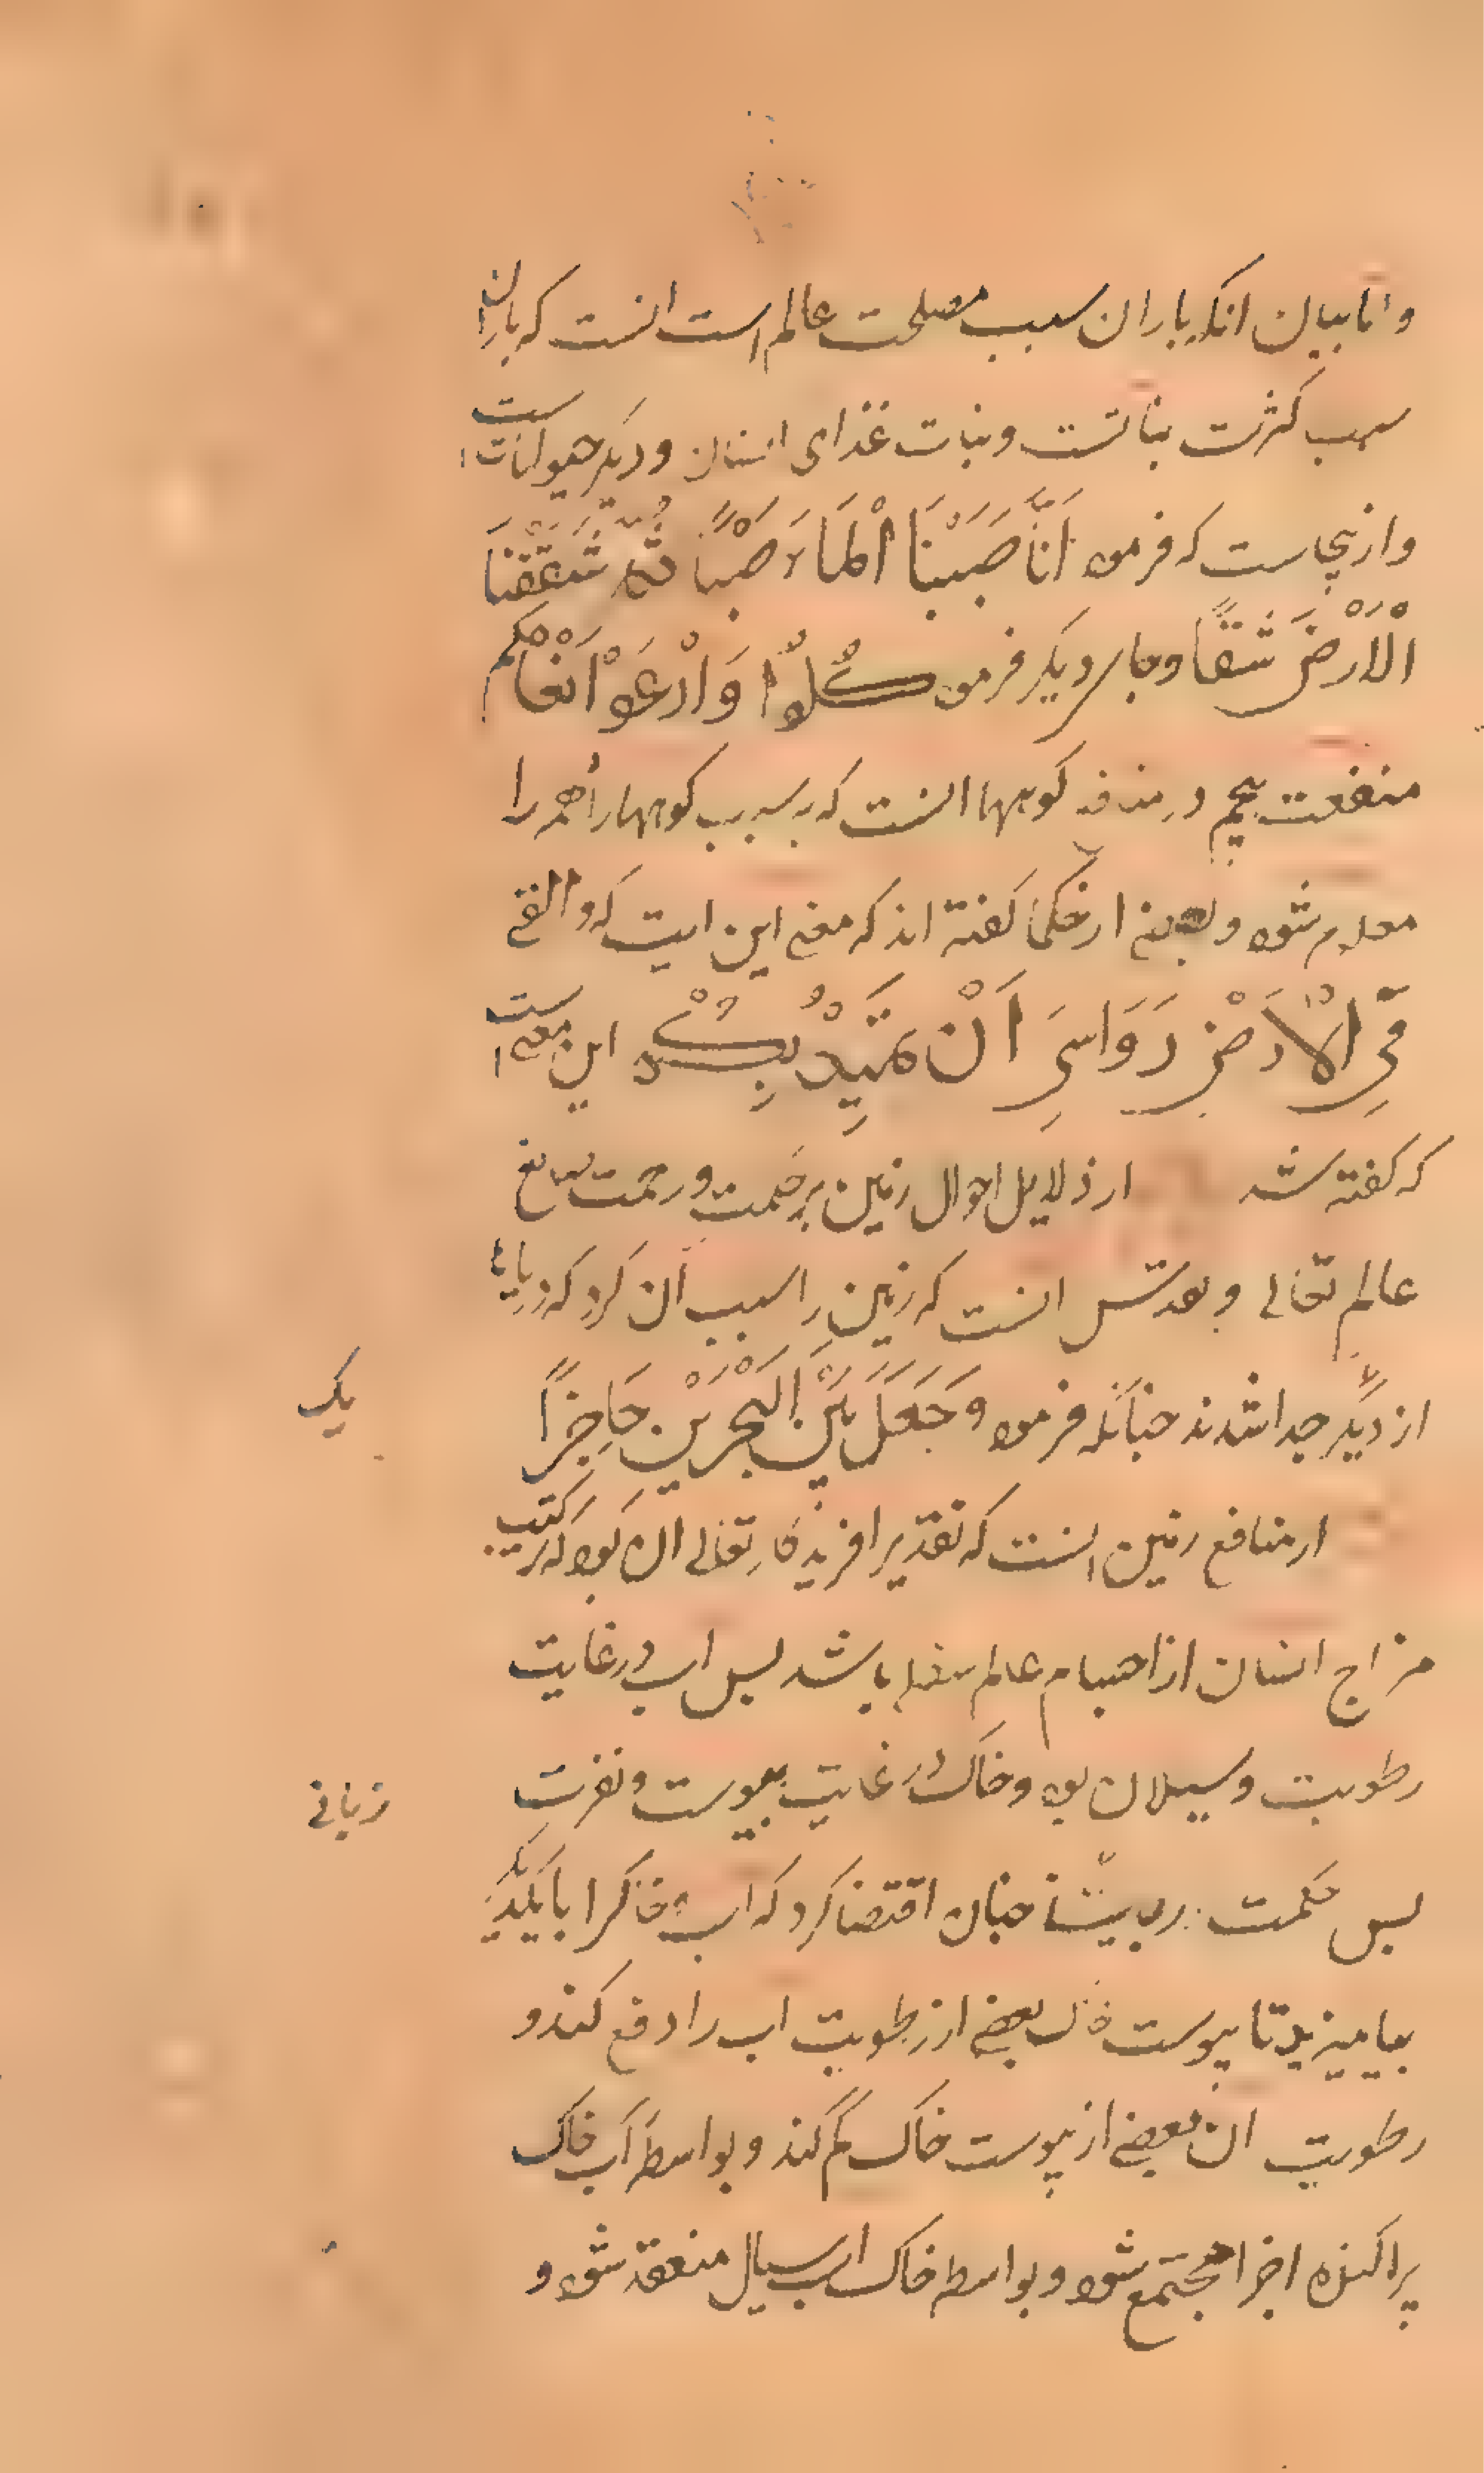 واما بیان انکه باران سبب مصلحت عالم است انست که باران
سبب کثرت نباتست و نبات غذای انسان و دیکر حیوانات است
و ازینجاست که فرمود اَنَّا صَبَبْنَا الْمَاءَ صَبًّا ثُمَّ شَقَقْنَا
الْاَرْضَ شَقًّا و جای دیکر فرمود کُلُوْا وَارْعَوْا اَنْعَامَکُم
منفعت پنجم در منافع کوهها انست که به سبب کوهها راهها را
معلوم شود و بعضی از حکما کفته اند که معنی این ایت که و القی
فِی الْاَرْضِ رَوَاسِیَ اَنْ تَمِیْدَ بِکُمْ این معنی است
که کفته شد از دلایل احوال زمین بر حکمت و رحمت صانع
عالم تعالی و تقدس انست که زمین را سبب ان کرد که دریاها
یک
از دیکر جدا شدند چنانکه فرمود وَجَعَلَ بَیْنَ الْبَحْرَیْنِ حَاجِزًا
از منافع زمین انست که تقدیر افریدکار تعالی ان بود که ترکیب
مزاج انسان از اجسام عالم سفلی باشد پس اب در غایت
رطوبت و سیلان بود و خاک در غایت یبوست و تفرت
زبانی
پس حکمت چنان اقتضا کرد که اب و خاک را با یکدیکر
بیامیزید تا یبوست خاک بعضی از رطوبت اب را دفع کند و
رطوبت ان بعضی از یبوست خاک کم کند و بواسطه آب خاک
پراکنده اجزا مجتمع شود و بواسطه خاک اب سیال منعقد شود و